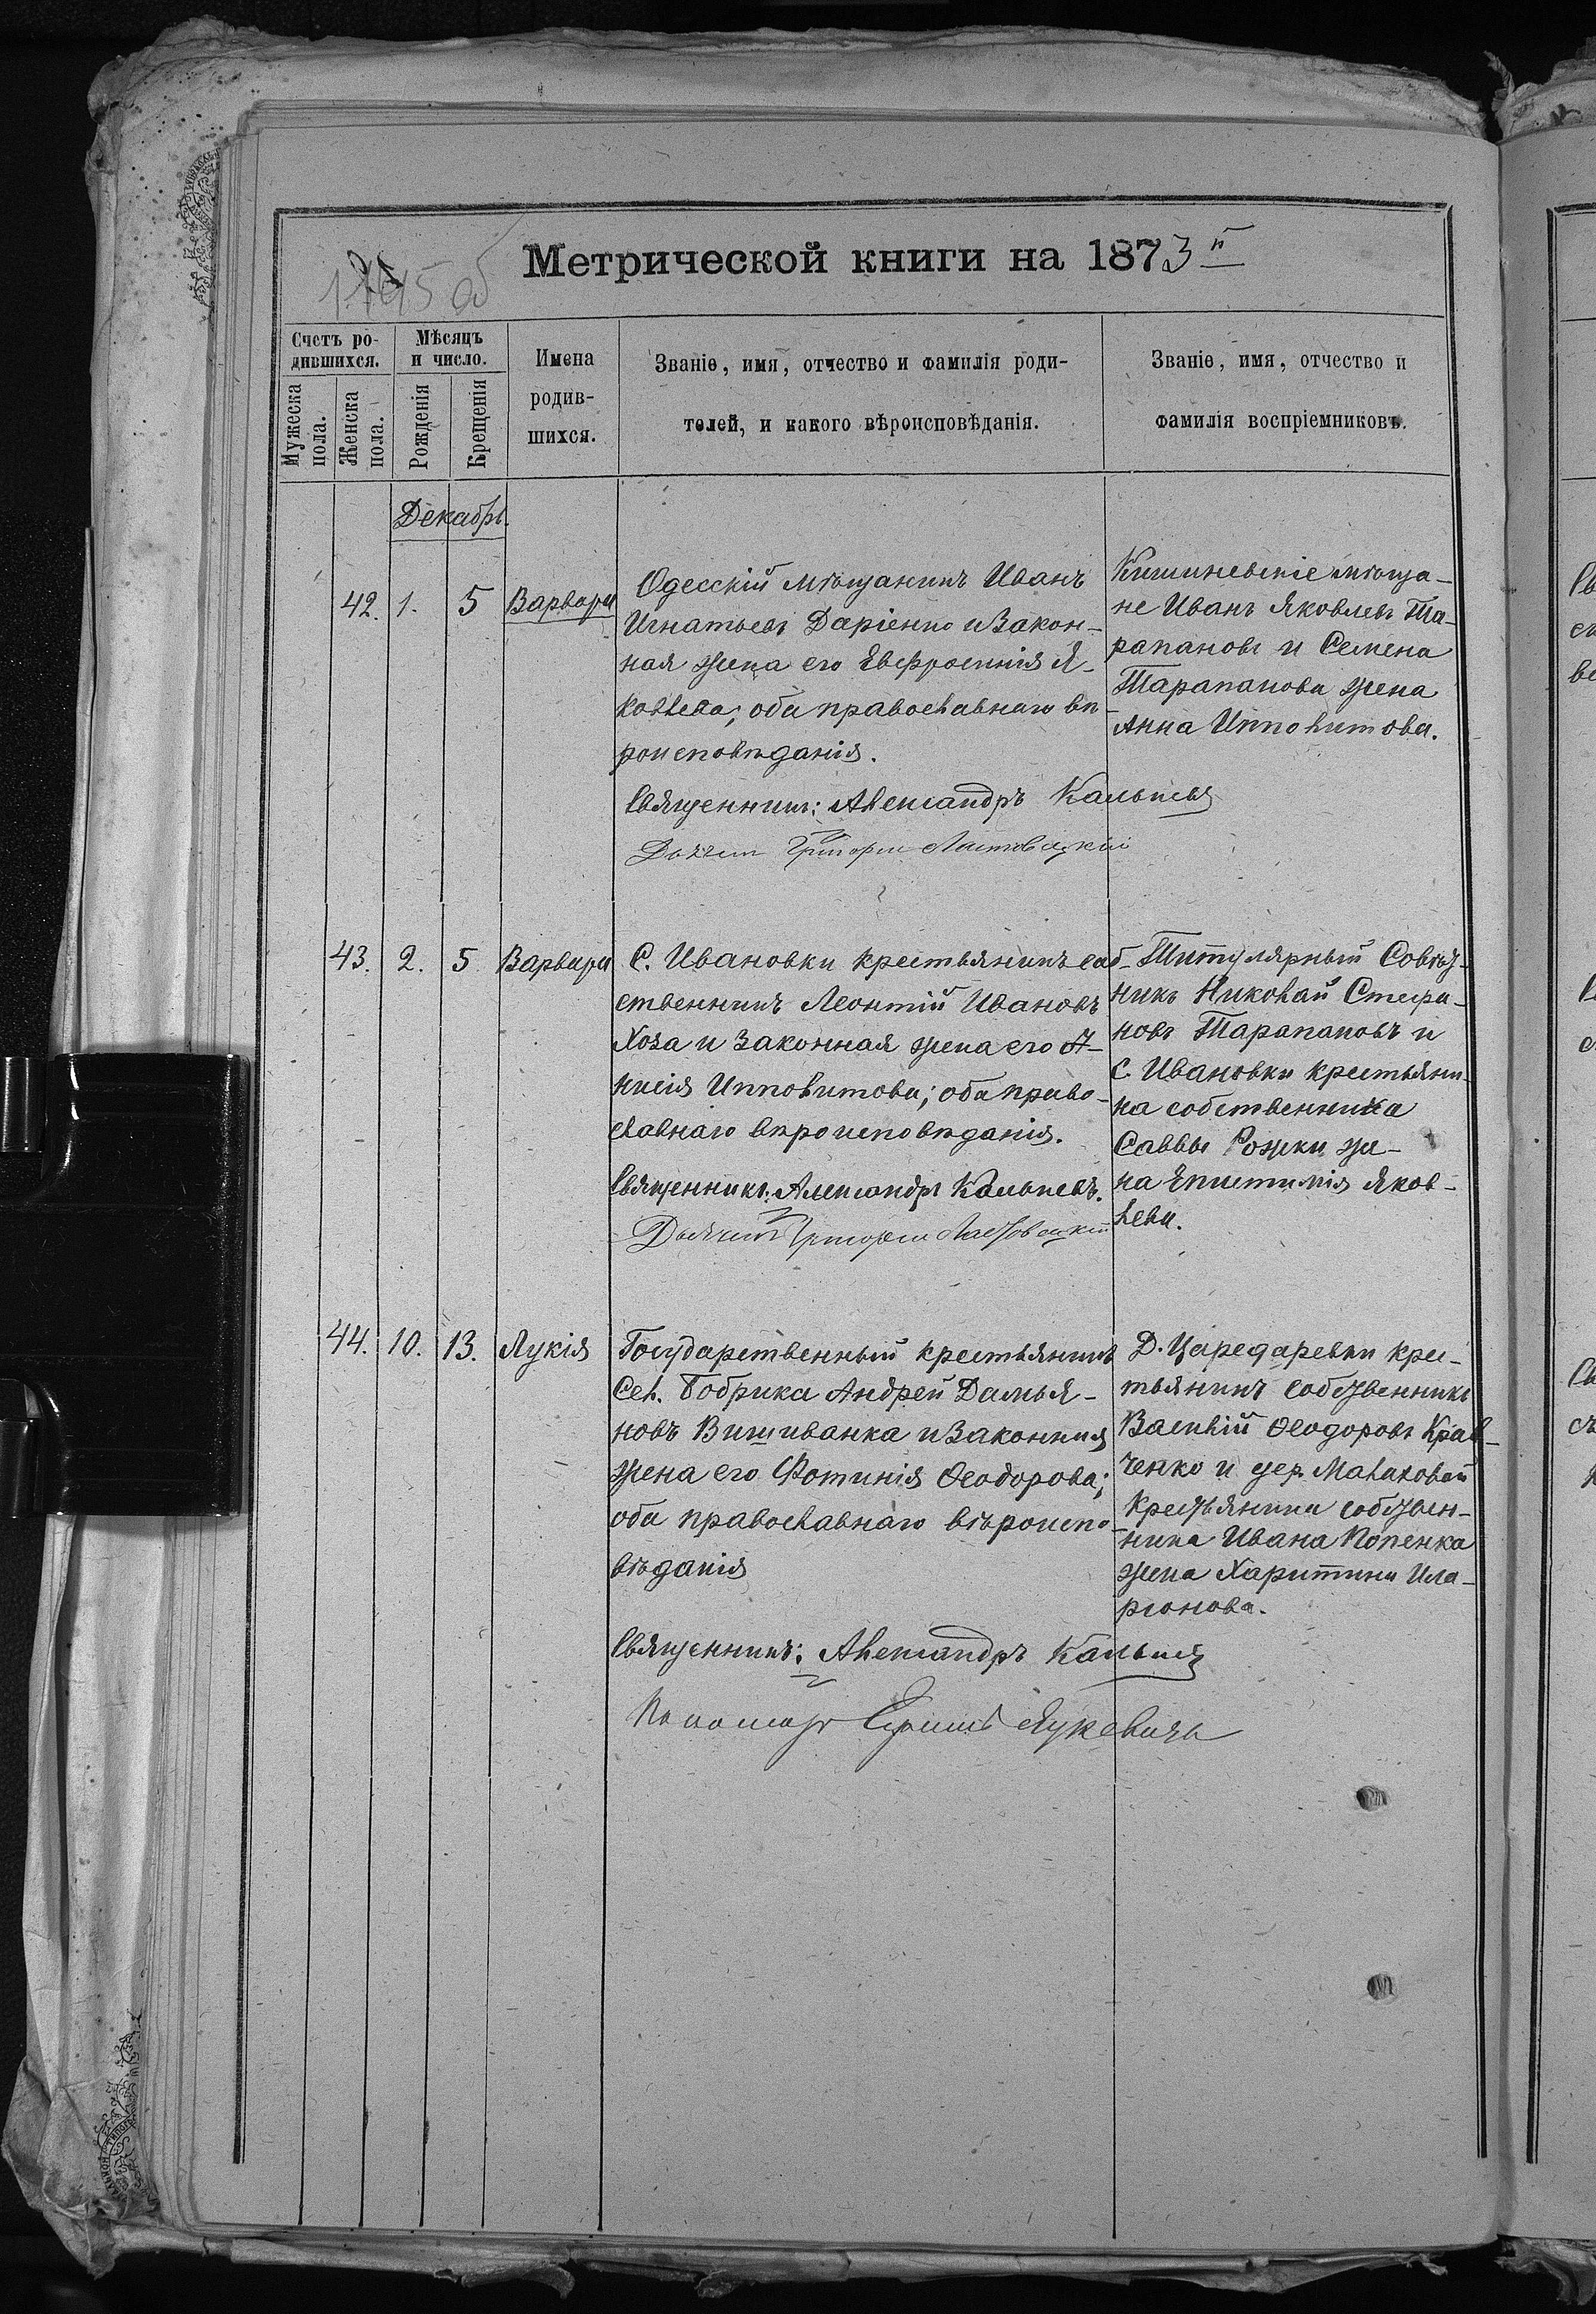 Метрической книги на 1873 й
Счетъ ро-
дившихся.
Мужеска пола.
Женска пола.
Мѣсяцъ
и число.
Рожденія
Крещенія
Имена
родив-
шихся.
Званіе, имя, отчество и фамилія роди-
телей, и какого вѣроисповѣданія.
Званіе, имя, отчество и
фамилія воспріемниковъ.
Декабрь.
42. 1. 5 Варвара
Одесскій мѣщанинъ Иванъ
Игнатьевъ Даріенко и закон-
ная жена его Евфросинія Я-
ковлева; оба православнаго вѣ-
роисповѣданія.
Священникъ: Александръ
Григорій
Кишиневскіе мѣща-
не Иванъ Яковлевъ Та-
рапановъ и Семена
Тарапанова жена
Анна Ипполитова.
43. 2. 5 Варвара
С. Ивановки крестьянинъ соб-
ственникъ Леонтій Ивановъ
Хоза и законная жена его А-
нисія Ипполитова; оба право-
славнаго вѣроисповѣданія.
Священникъ: Александръ
Григорій
Титулярный Совѣт-
никъ Николай Стефа-
новъ Тарапановъ и
С. Ивановки крестьяни-
на собственника
Саввы Рожки же-
на Епистимія Яков-
лева.
44. 10. 13. Лукія
Государственный крестьянинъ
Сел. Бобрика Андрей Дамья-
новъ Вишиванка и законная
жена его Фотинія Ѳеодорова;
оба православнаго вѣроиспо-
вѣданія
Священникъ: Александръ
Пономарь Лукевичъ
Д. Царедаревки крес-
тьянинъ собственникъ
Василій Ѳеодоровъ Крав-
ченко и дер. Малаховой
крестьянина собствен-
ника Ивана Попенка
жена Харитина Ила-
ріонова.